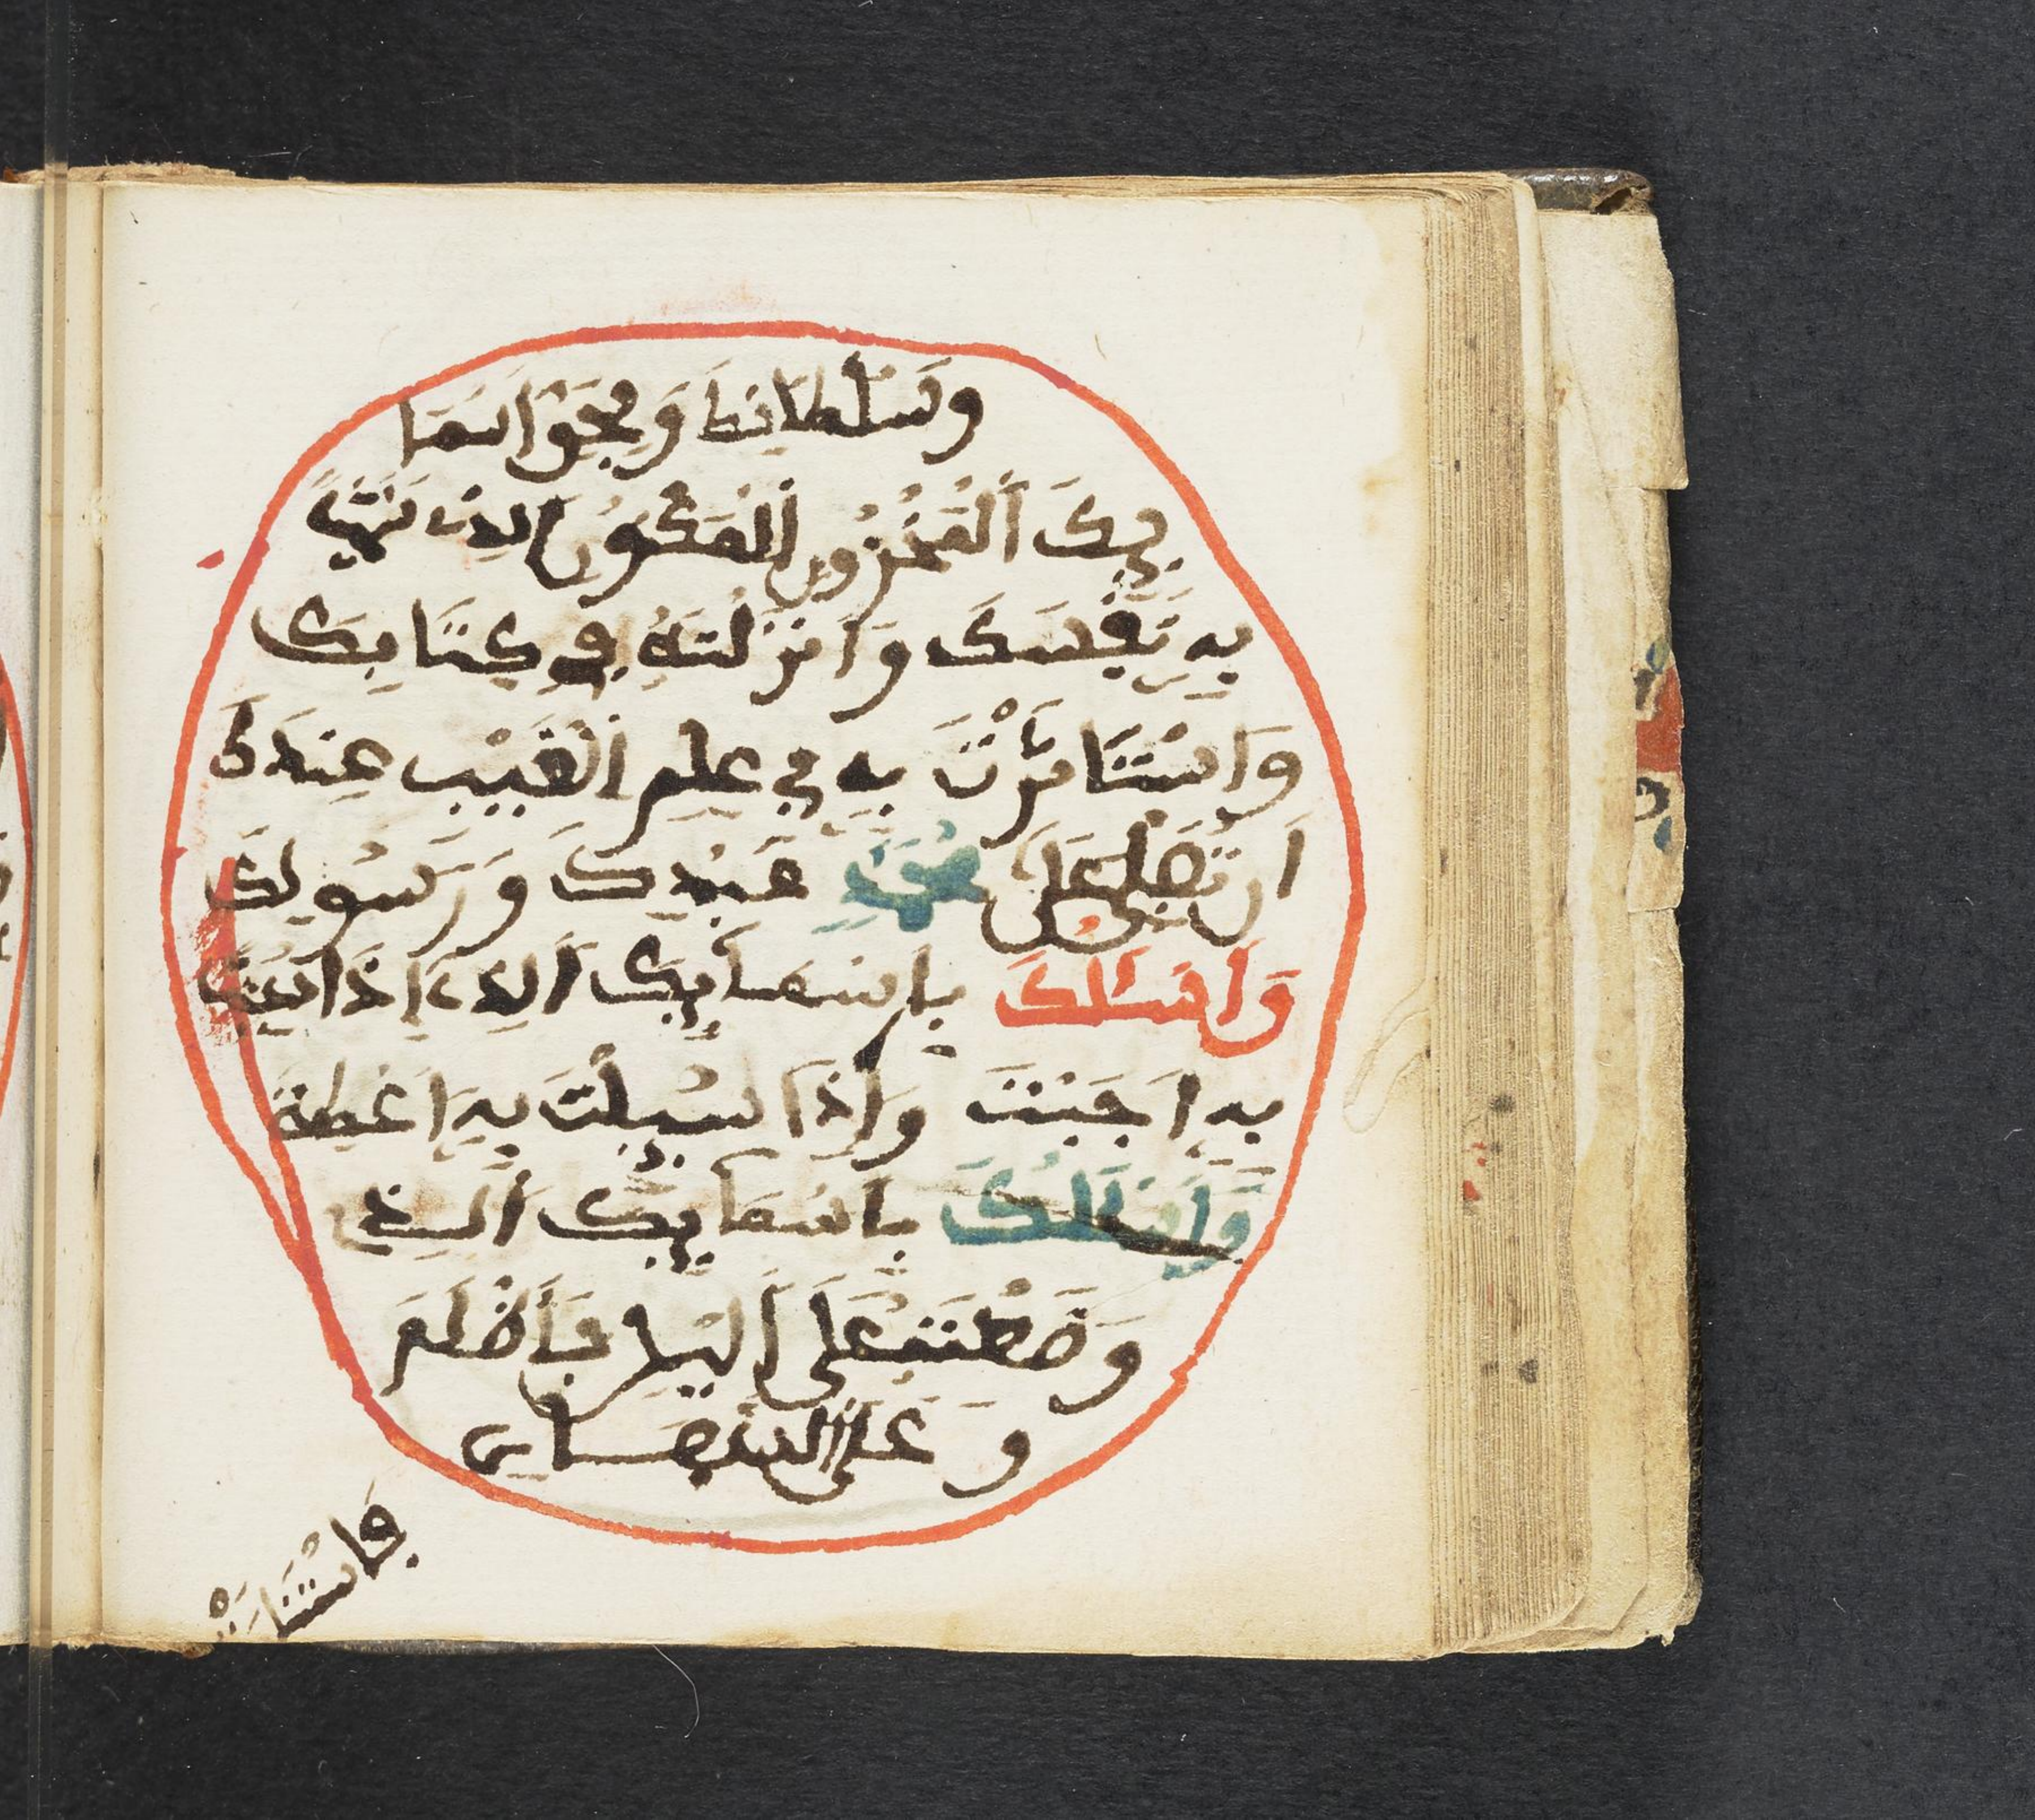 وَسُلْطَانِكَ وَبِحَقِّ اَسْمَا
ئِكَ اَلْمَخْزُونِ اَلْمَكْنُونِ الذِي سَمَّيْتَ
بِهِ نَفْسَكَ وَاَنْزَلْتَهُ فِي كِتَابِكَ
وَاسْتَاثَرْتَ بِهِ فِي عِلْمِ اَلْغَيْبِ عِنْدَكَ
اَن تُصَلِّيَ عَلَى مُحَمَّدٍ عَبْدِكَ وَرَسُولِكَ
وَاَسْـَٔلُكَ بِاِسْمَآئِكَ اَلذِے إِذَا دُعِيتَ
بِهِ اَجَبْتَ وَإِذَا سُئِلْتَ بِهِ اَعْطَيْتَ
وَاَسْـَٔلُكَ بِاسْمَآئِكَ اَلذِے
وَضَعْتَهُ عَلَى اَليْلِ فَأَظْلَمَ
وَعَلَى النَّهَارِ
فَاسْتَنَارَ